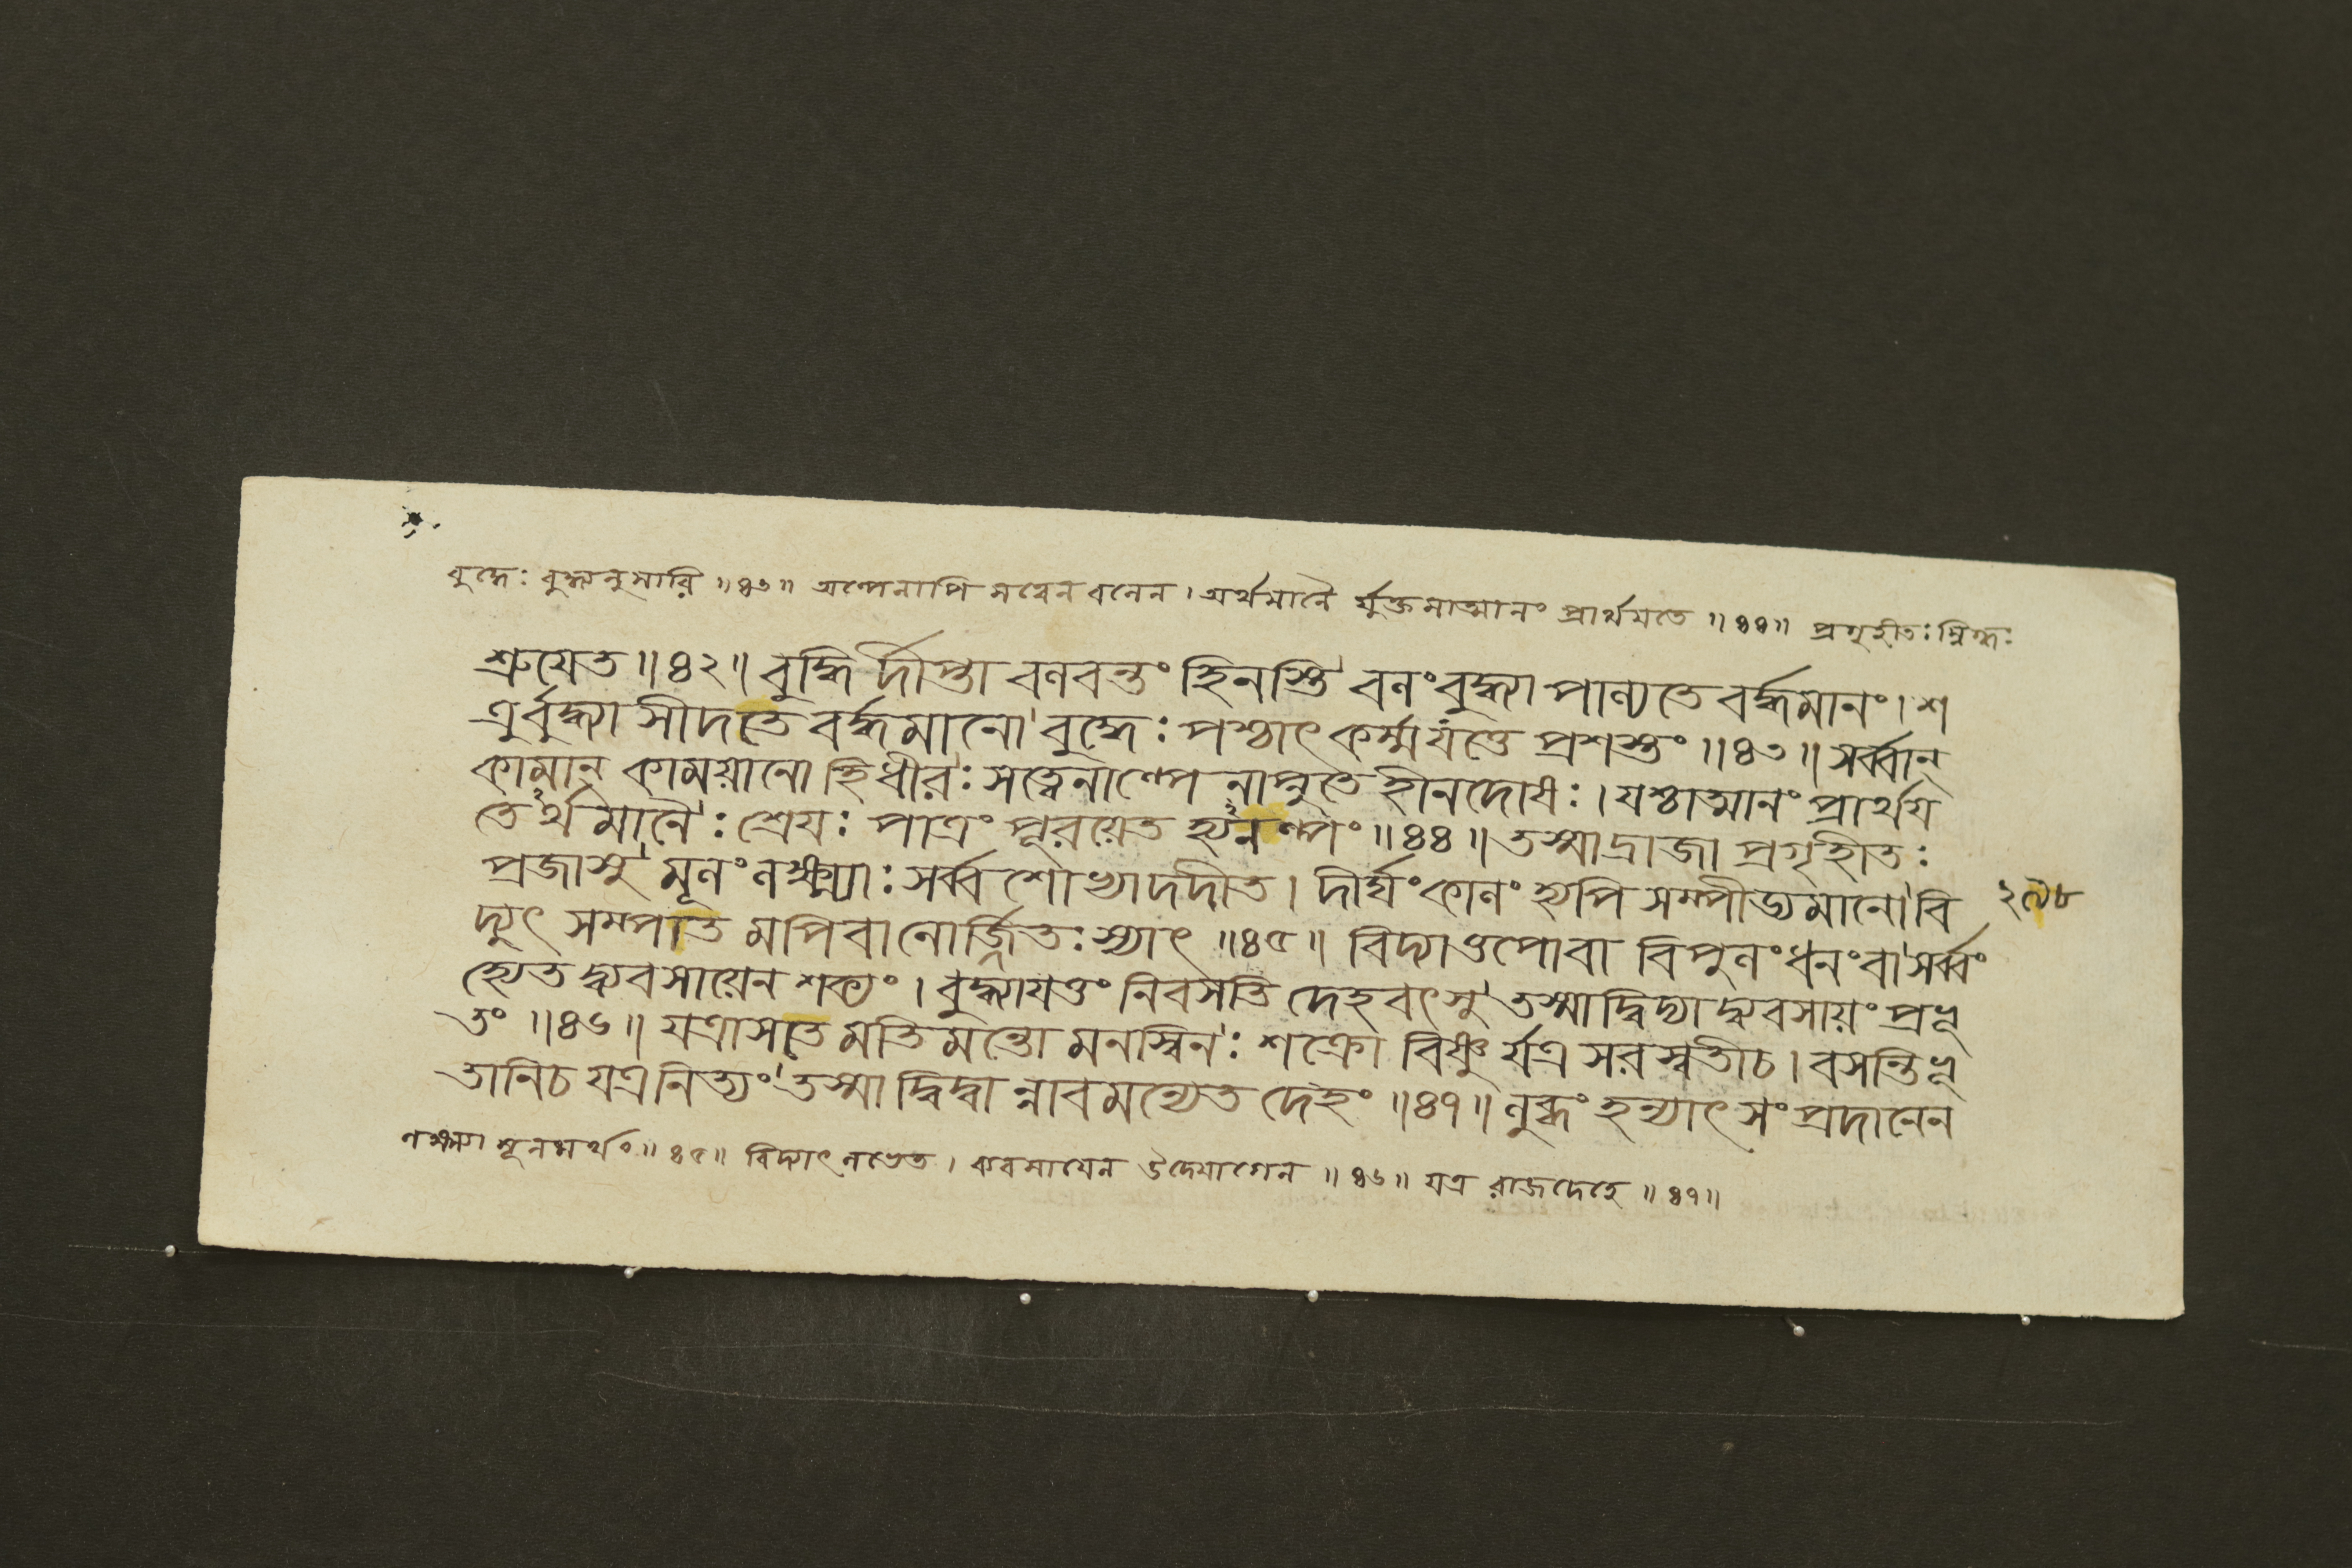 বুদ্ধেঃ বুদ্ধ্যনুসারি ॥৪৩॥ অল্পেনাপি সত্বেন বলেন । অর্থমানৈ র্যুক্তমাত্মানং প্রার্থয়তে ॥৪৪॥ প্রগৃহীতঃ স্নিগ্ধঃ
শ্রুযেত ॥৪২॥ বুদ্ধি র্দীপ্তা বলবন্তং হিনস্তি বলং বুদ্ধ্যা পাল্যতে বর্দ্ধমানং । শ
ত্রুর্বুদ্ধ্যা সীদতে বর্দ্ধমানো বুদ্ধেঃ পশ্চাৎ কর্ম্ম যত্তে প্রশস্তং ॥৪৩॥ সর্ব্বান্
কামান্ কাময়ানো হি ধীরঃ সত্বেনাল্পে নাপ্নুতে হীনদোষঃ । যশ্চাত্মানং প্রার্থয
তেঽর্থমানৈঃ শ্রেযঃ পাত্রং পূরয়েত হ্যনল্পং ॥৪৪॥ তস্মাদ্রাজা প্রগৃহীতঃ
প্রজাসু মূলং লক্ষ্ম্যাঃ সর্ব্বশো খ্যাদদীত । দীর্ঘং কালং হ্যপি সম্পীড্যমানো বি
২৯৮
দ্যুৎ সম্পাত মপি বা নোর্জ্জিতঃ স্যাৎ ॥৪৫॥ বিদ্যা তপো বা বিপুলং ধনং বা সর্ব্বং
হ্যেত দ্ব্যবসায়েন শক্যং । বুদ্ধ্যাযত্তং নিবসতি দেহবৎসু তস্মাদ্বিদ্যা দ্ব্যবসায়ং প্রভূ
তং ॥৪৬॥ যত্রাসতে মতিমন্তো মনস্বিনঃ শক্রো বিষ্ণু র্যত্র সরস্বতী চ । বসন্তি ভূ
তানি চ যত্র নিত্যং তস্মা দ্বিদ্বা ন্নাবমন্যেত দেহং ॥৪৭॥ লুব্ধং হন্যাৎ সং প্রদানেন
লক্ষ্ম্যা মূলমর্থং ॥৪৫॥ বিদ্যাৎ লভেত । ব্যবসাযেন উদ্যোগেন ॥৪৬॥ যত্র রাজদেহে ॥৪৭॥